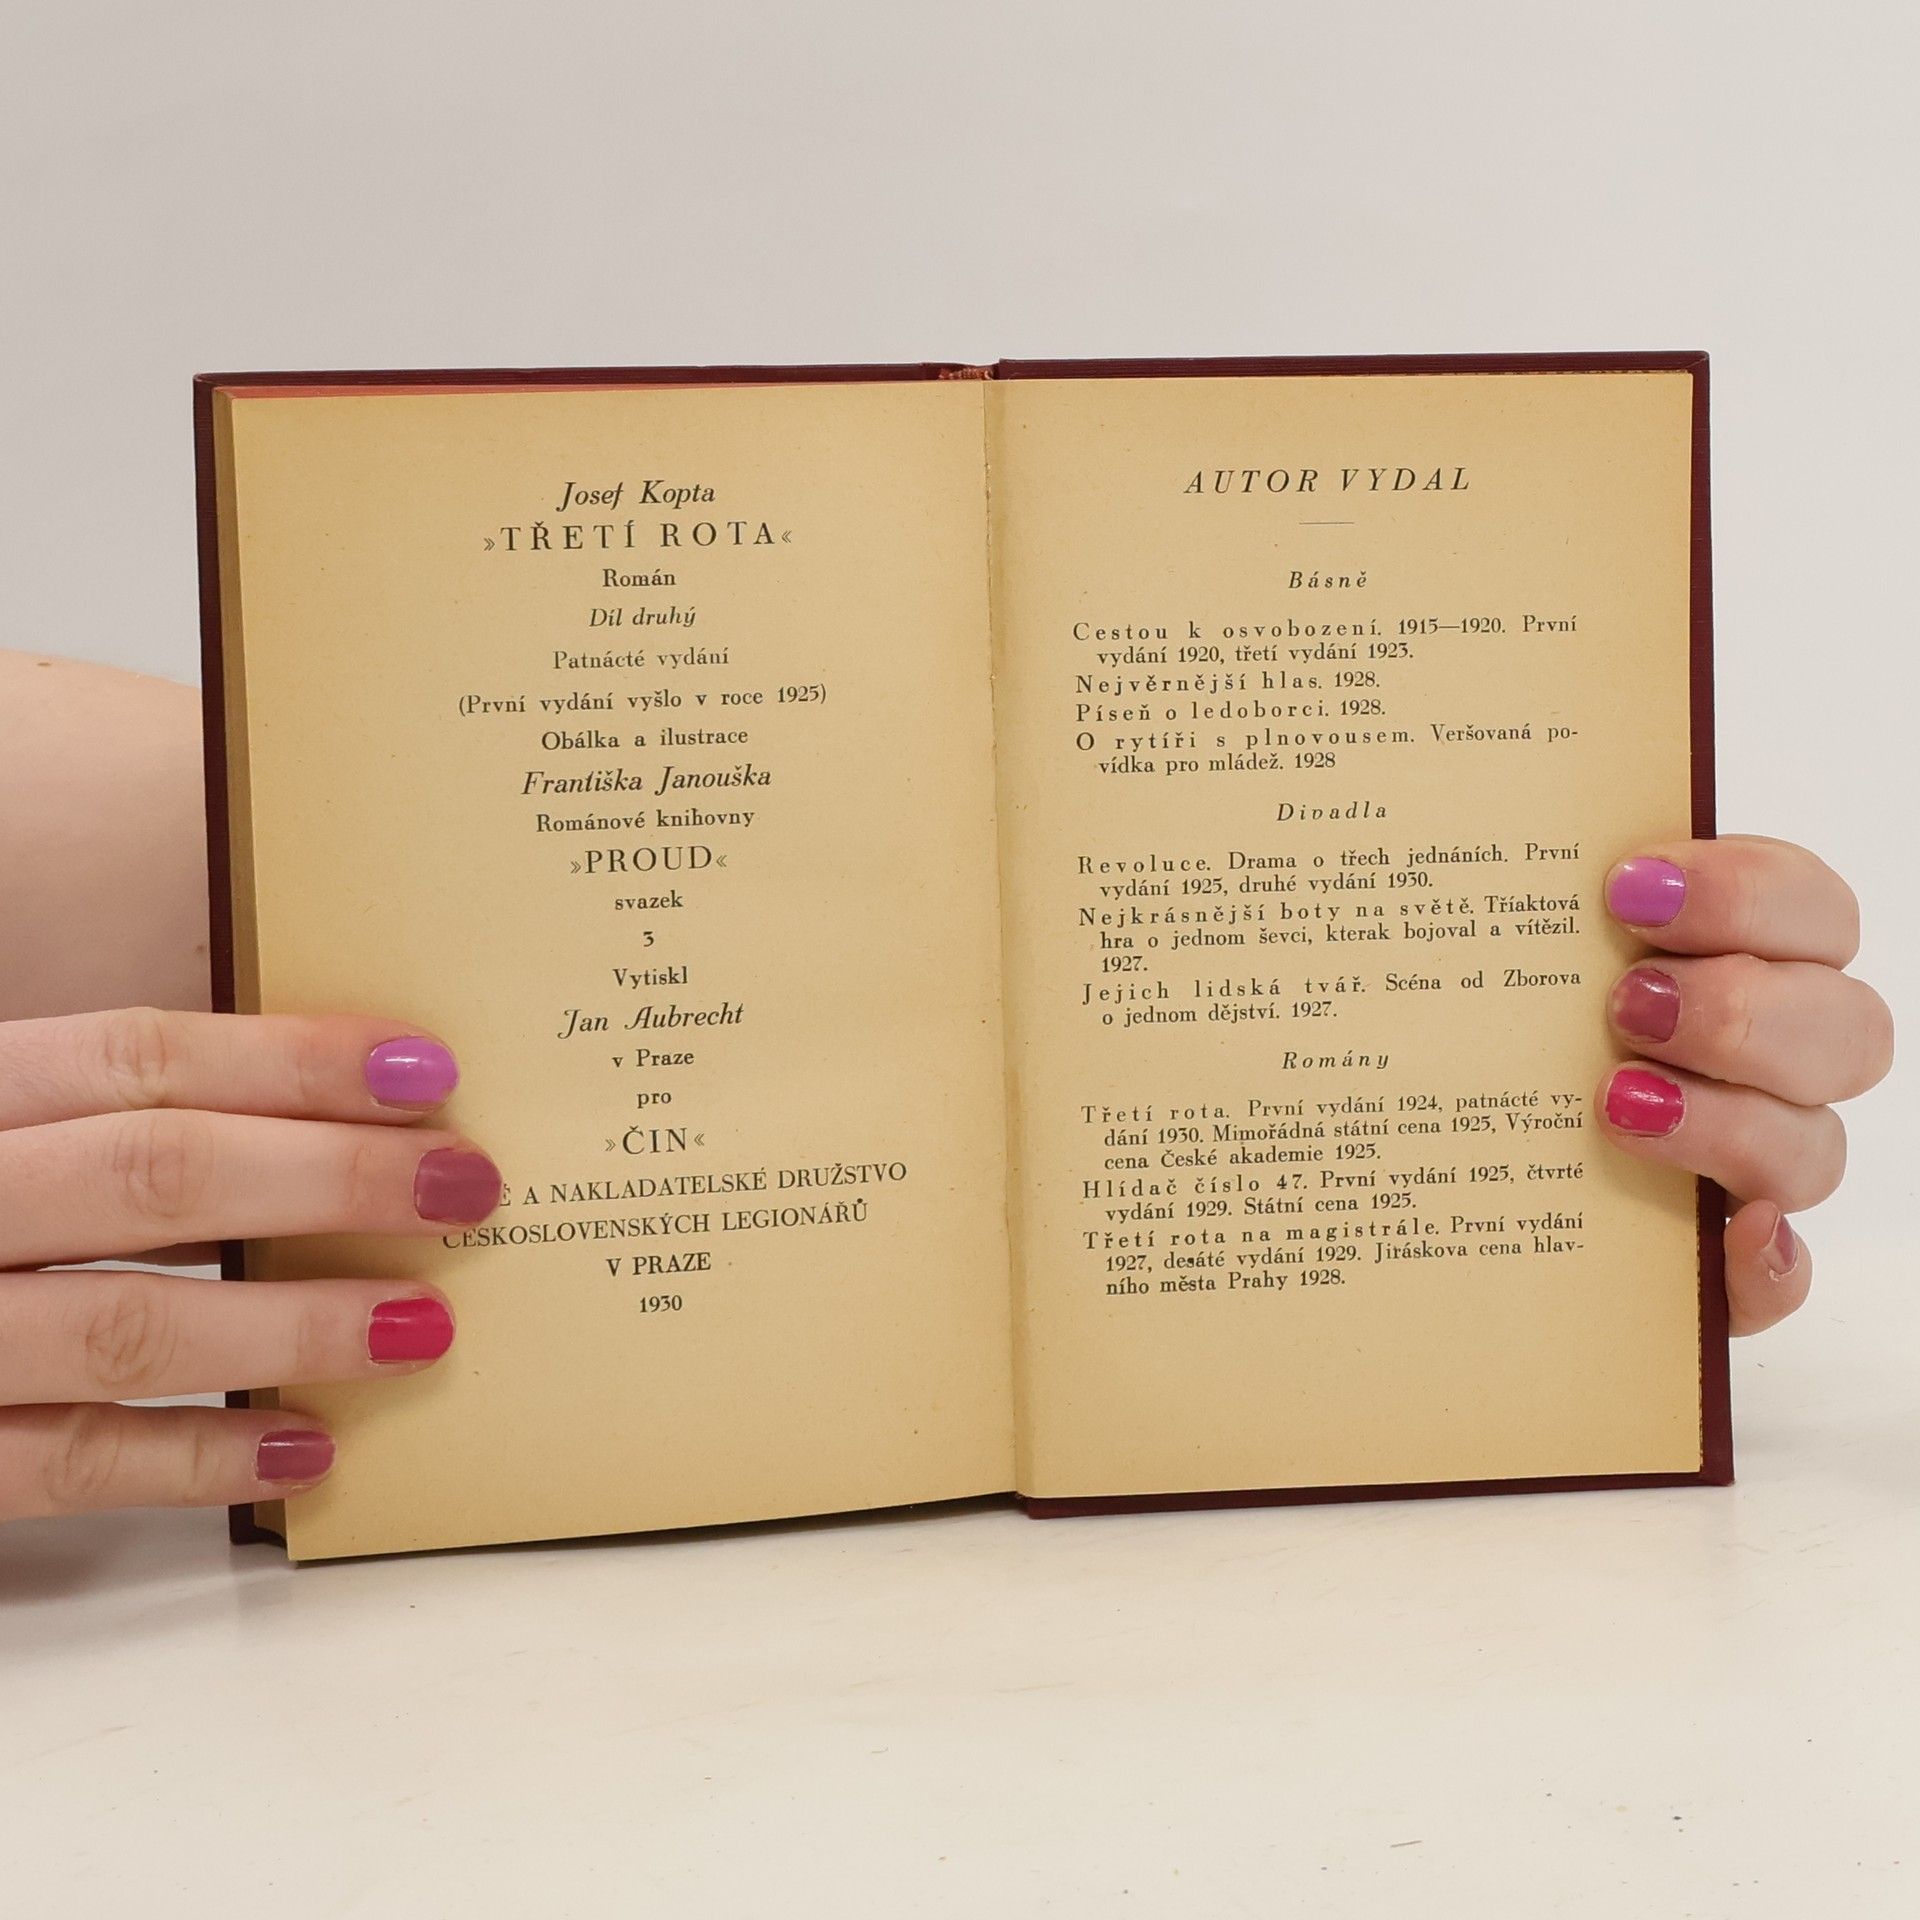 Josef Kopta
»TŘETÍ ROTA«
Román
Díl druhý
Patnácté vydání
(První vydání vyšlo v roce 1925)
Obálka a ilustrace
Františka Janouška
Románové knihovny
»PROUD«
svazek
3
Vytiskl
Jan Aubrecht
v Praze
pro
»ČIN«
A NAKLADATELSKÉ DRUŽSTVO
ČESKOSLOVENSKÝCH LEGIONÁŘŮ
V PRAZE
1930
AUTOR VYDAL
Básně
Cestou k osvobození. 1915—1920. První
vydání 1920, třetí vydání 1923.
Nejvěrnější hlas. 1928.
Píseň o ledoborci. 1928.
O rytíři s plnovousem. Veršovaná po-
vídka pro mládež. 1928
Divadla
Revoluce. Drama o třech jednáních. První
vydání 1925, druhé vydání 1930.
Nejkrásnější boty na světě. Tříaktová
hra o jednom ševci, kterak bojoval a vítězil.
1927.
Jejich lidská tvář. Scéna od Zborova
o jednom dějství. 1927.
Romány
Třetí rota. První vydání 1924, patnácté vy-
dání 1930. Mimořádná státní cena 1925, Výroční
cena České akademie 1925.
Hlídač číslo 47. První vydání 1925, čtvrté
vydání 1929. Státní cena 1925.
Třetí rota na magistrále. První vydání
1927, desáté vydání 1929. Jiráskova cena hlav-
ního města Prahy 1928.